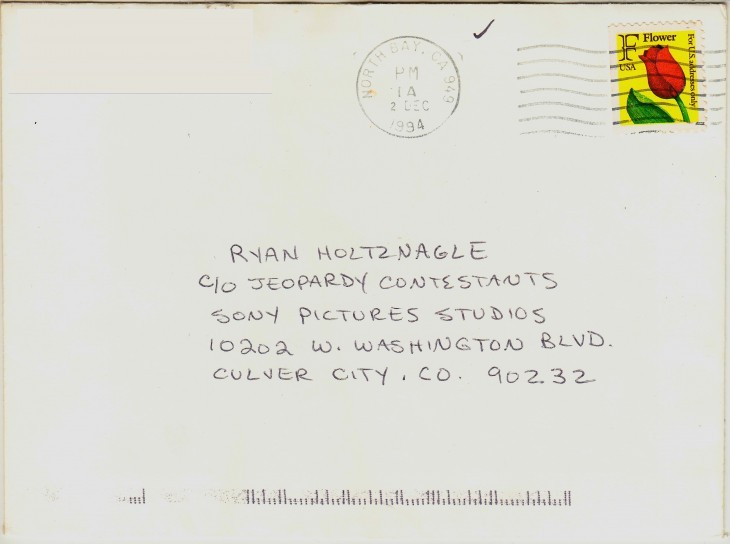 NORTH BAY, CA 949
PM
1A
2 DEC
1994
F Flower
USA
For U.S. addresses only
RYAN HOLTZNAGLE
C/O JEOPARDY CONTESTANTS
SONY PICTURES STUDIOS
10202 W. WASHINGTON BLVD.
CULVER CITY, CO. 90232